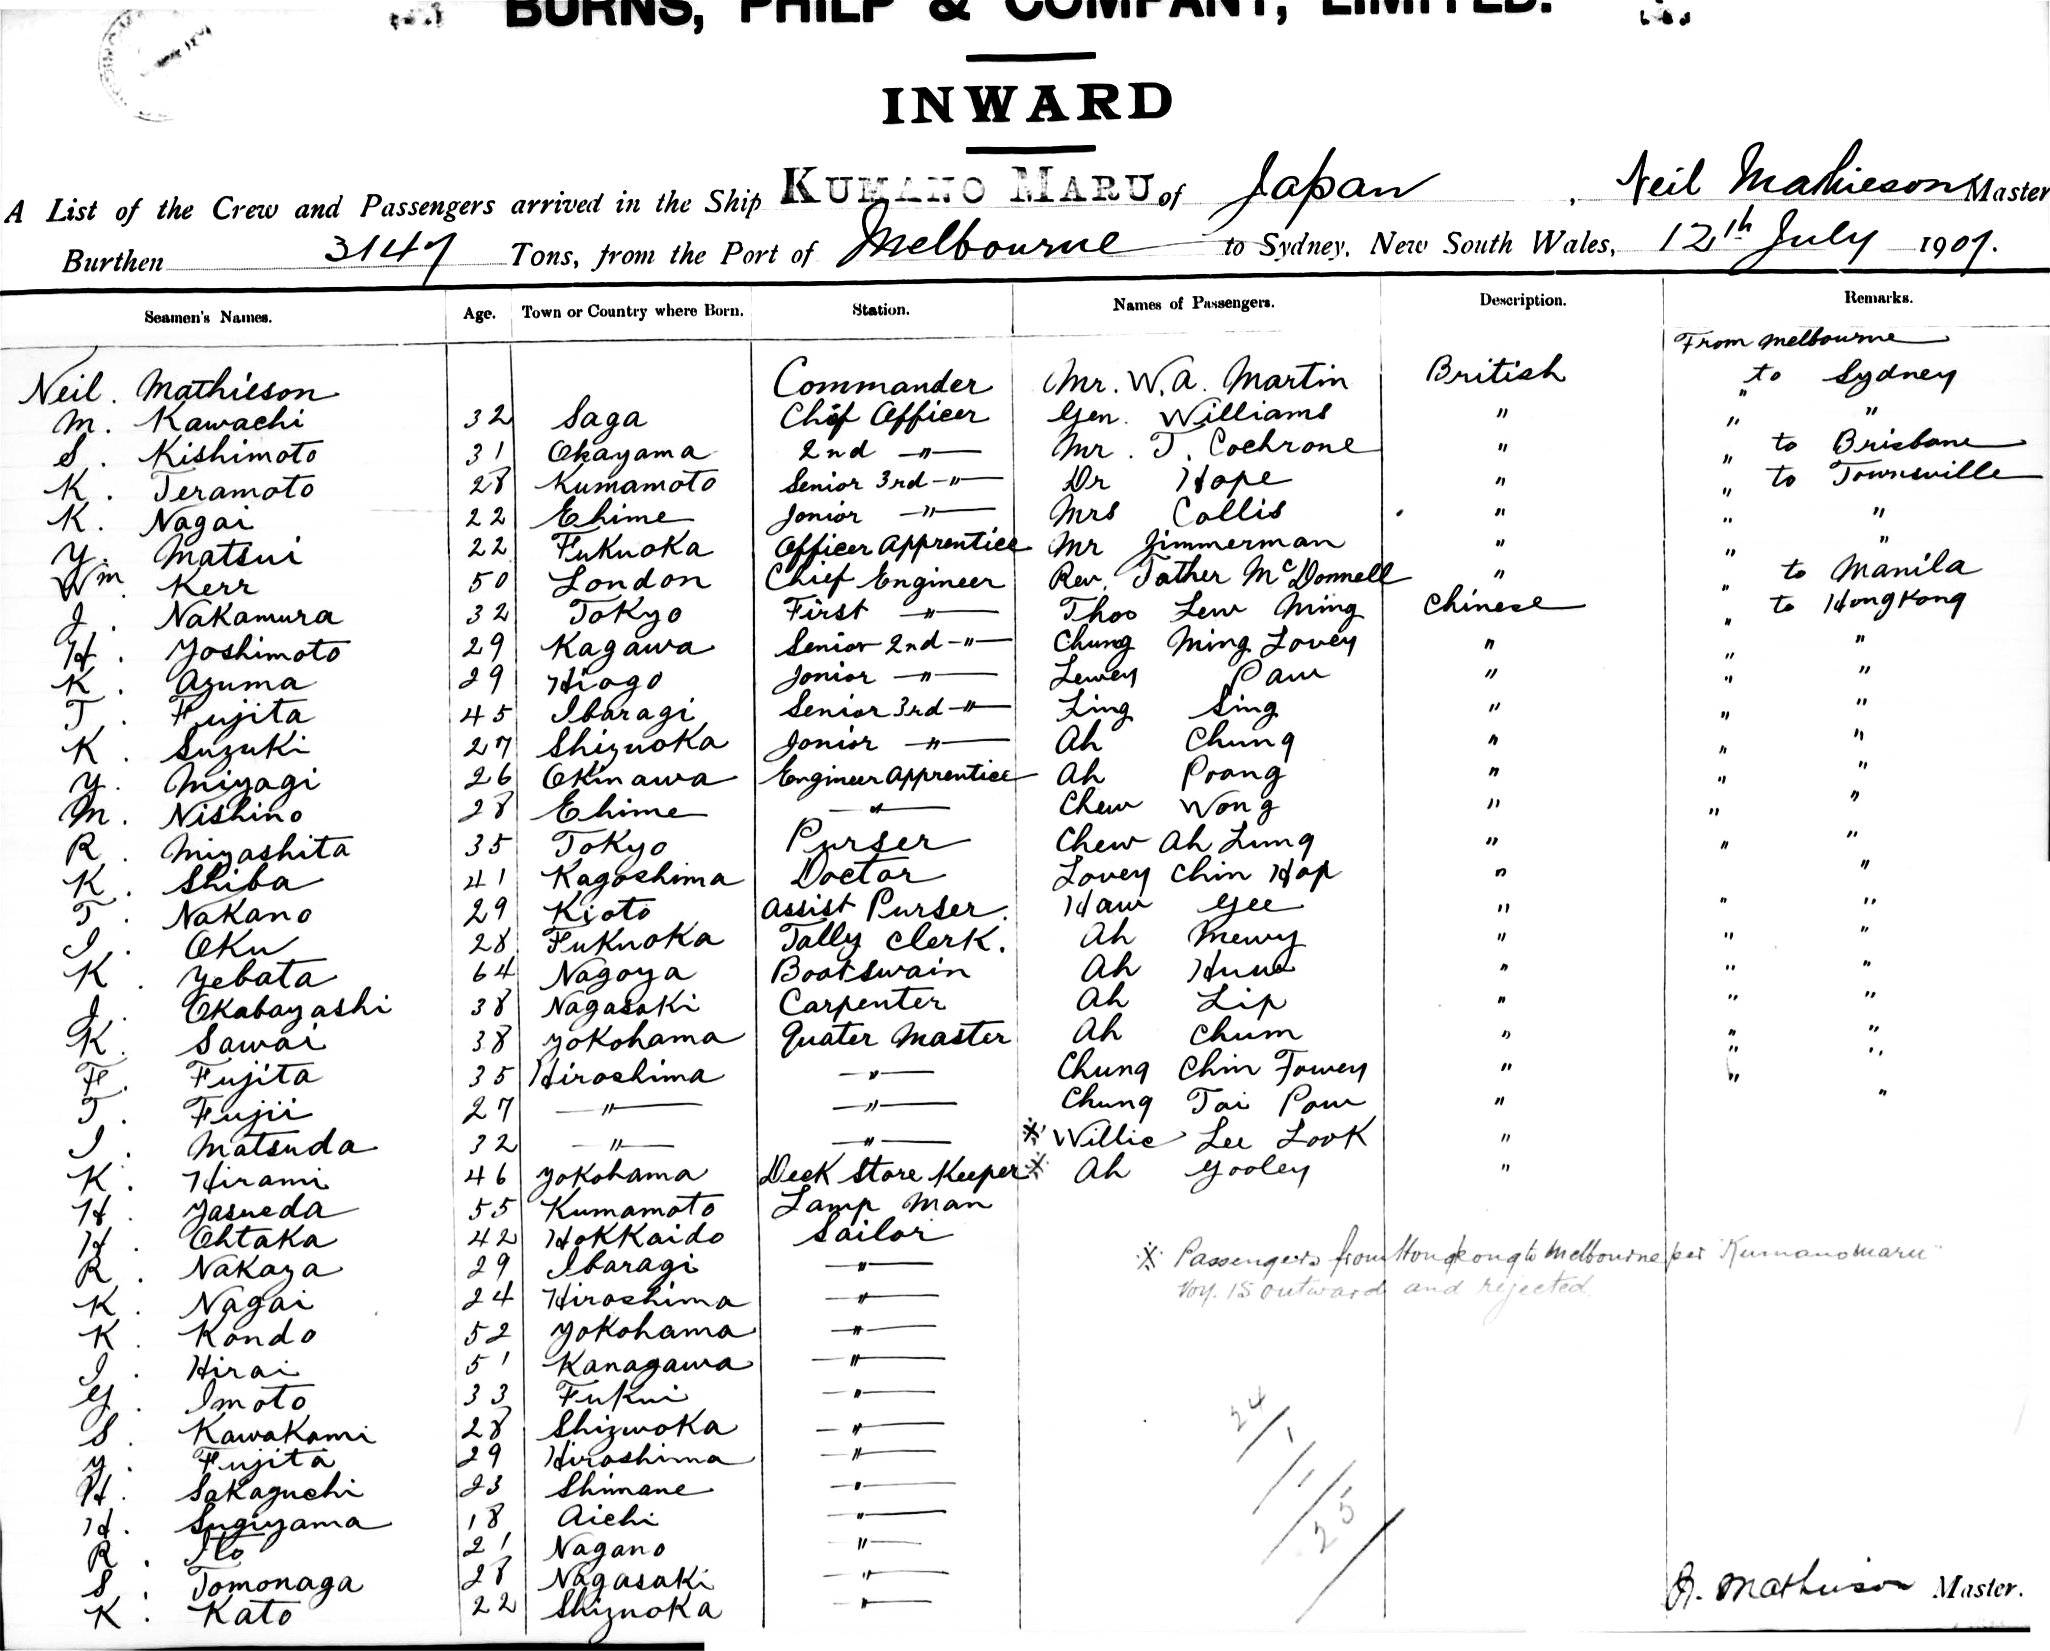 BURNS, PHILP & COMPANY, LIMITED.
INWARD
A List of the Crew and Passengers arrived in the Ship KUMANO MARU of Japan, Neil Mathieson Master
Burthen 3147 Tons, from the Port of Melbourne to Sydney, New South Wales, 12th July 1907.
Seamen's Names. Age. Town or Country where Born. Station. Names of Passengers. Description. Remarks.
From Melbourne
Neil. Mathieson Commander Mr. W. A. Martin British " to Sydney
M. Kawachi 32 Saga Chief Officer Gen. Williams " " "
S. Kishimoto 31 Okayama 2nd —"— Mr. T. Cochrone " " to Brisbane
K. Teramoto 28 Kumamoto Senior 3rd —"— Dr Hope " " to Townsville
K. Nagai 22 Ehime Jonior —"— Mrs Collis " " "
Y. Matsui 22 Fukuoka Officer Apprentice Mr Zimmerman " " "
Wm. Kerr 50 London Chief Engineer Rev. Father McDonnell " " to Manila
J. Nakamura 32 Tokyo First —"— Thoo Lew Ming Chinese " to HongKong
H. Yoshimoto 29 Kagawa Senior 2nd —"— Chung Ming Lovey " " "
K. Azuma 29 Hiogo Jonior —"— Lewey Paw " " "
T. Fujita 45 Ibaragi Senior 3rd —"— Ling Sing " " "
K. Suzuki 27 Shizuoka Jonior —"— Ah Chung " " "
Y. Miyagi 26 Okinawa Engineer Apprentice Ah Poang " " "
M. Nishino 28 Ehime —"— Chew Wong " " "
R. Miyashita 35 Tokyo Purser Chew Ah Lung " " "
K. Shiba 41 Kagoshima Doctor Lovey Chin Hop " "
T. Nakano 29 Kioto Assist Purser. Haw Gee " " "
I. Oku 28 Fukuoka Tally Clerk. Ah Mewy " " "
K. Yebata 64 Nagoya Boatswain Ah " " "
I. Okabayashi 38 Nagasaki Carpenter Ah Lip " " "
K. Sawai 38 Yokohama Quater Master Ah Chum " " "
F. Fujita 35 Hiroshima —"— Chung Chin Fowey " " "
T. Fujii 27 —"— —"— Chung Tai Paw " " "
I. Matsuda 32 —"— —"— ※ Willie Lee Look "
K. Hirami 46 Yokohama Deck Store Keeper ※ Ah Gooley "
H. Yasueda 55 Kumamoto Lamp Man
H. Ohtaka 42 Hokkaido Sailor
R. Nakaya 29 Ibaragi —"—
※ Passengers from Hongkong to Melbourne per "Kumano Maru"
Voy. 15 outward and rejected
K. Nagai 24 Hiroshima —"—
K. Kondo 52 Yokohama —"—
I. Hirai 51 Kanagawa —"—
G. Imoto 33 Fukui —"—
S. Kawakami 28 Shizuoka —"—
Y. Fujita 29 Hiroshima —"—
H. Sakaguchi 23 Shimane —"—
H. Sugiyama 18 Aichi —"—
R. Ito 21 Nagano —"—
S. Tomonaga 28 Nagasaki —"—
K. Kato 22 Shizuoka —"—
24/1/1/25/
N. Mathieson Master.